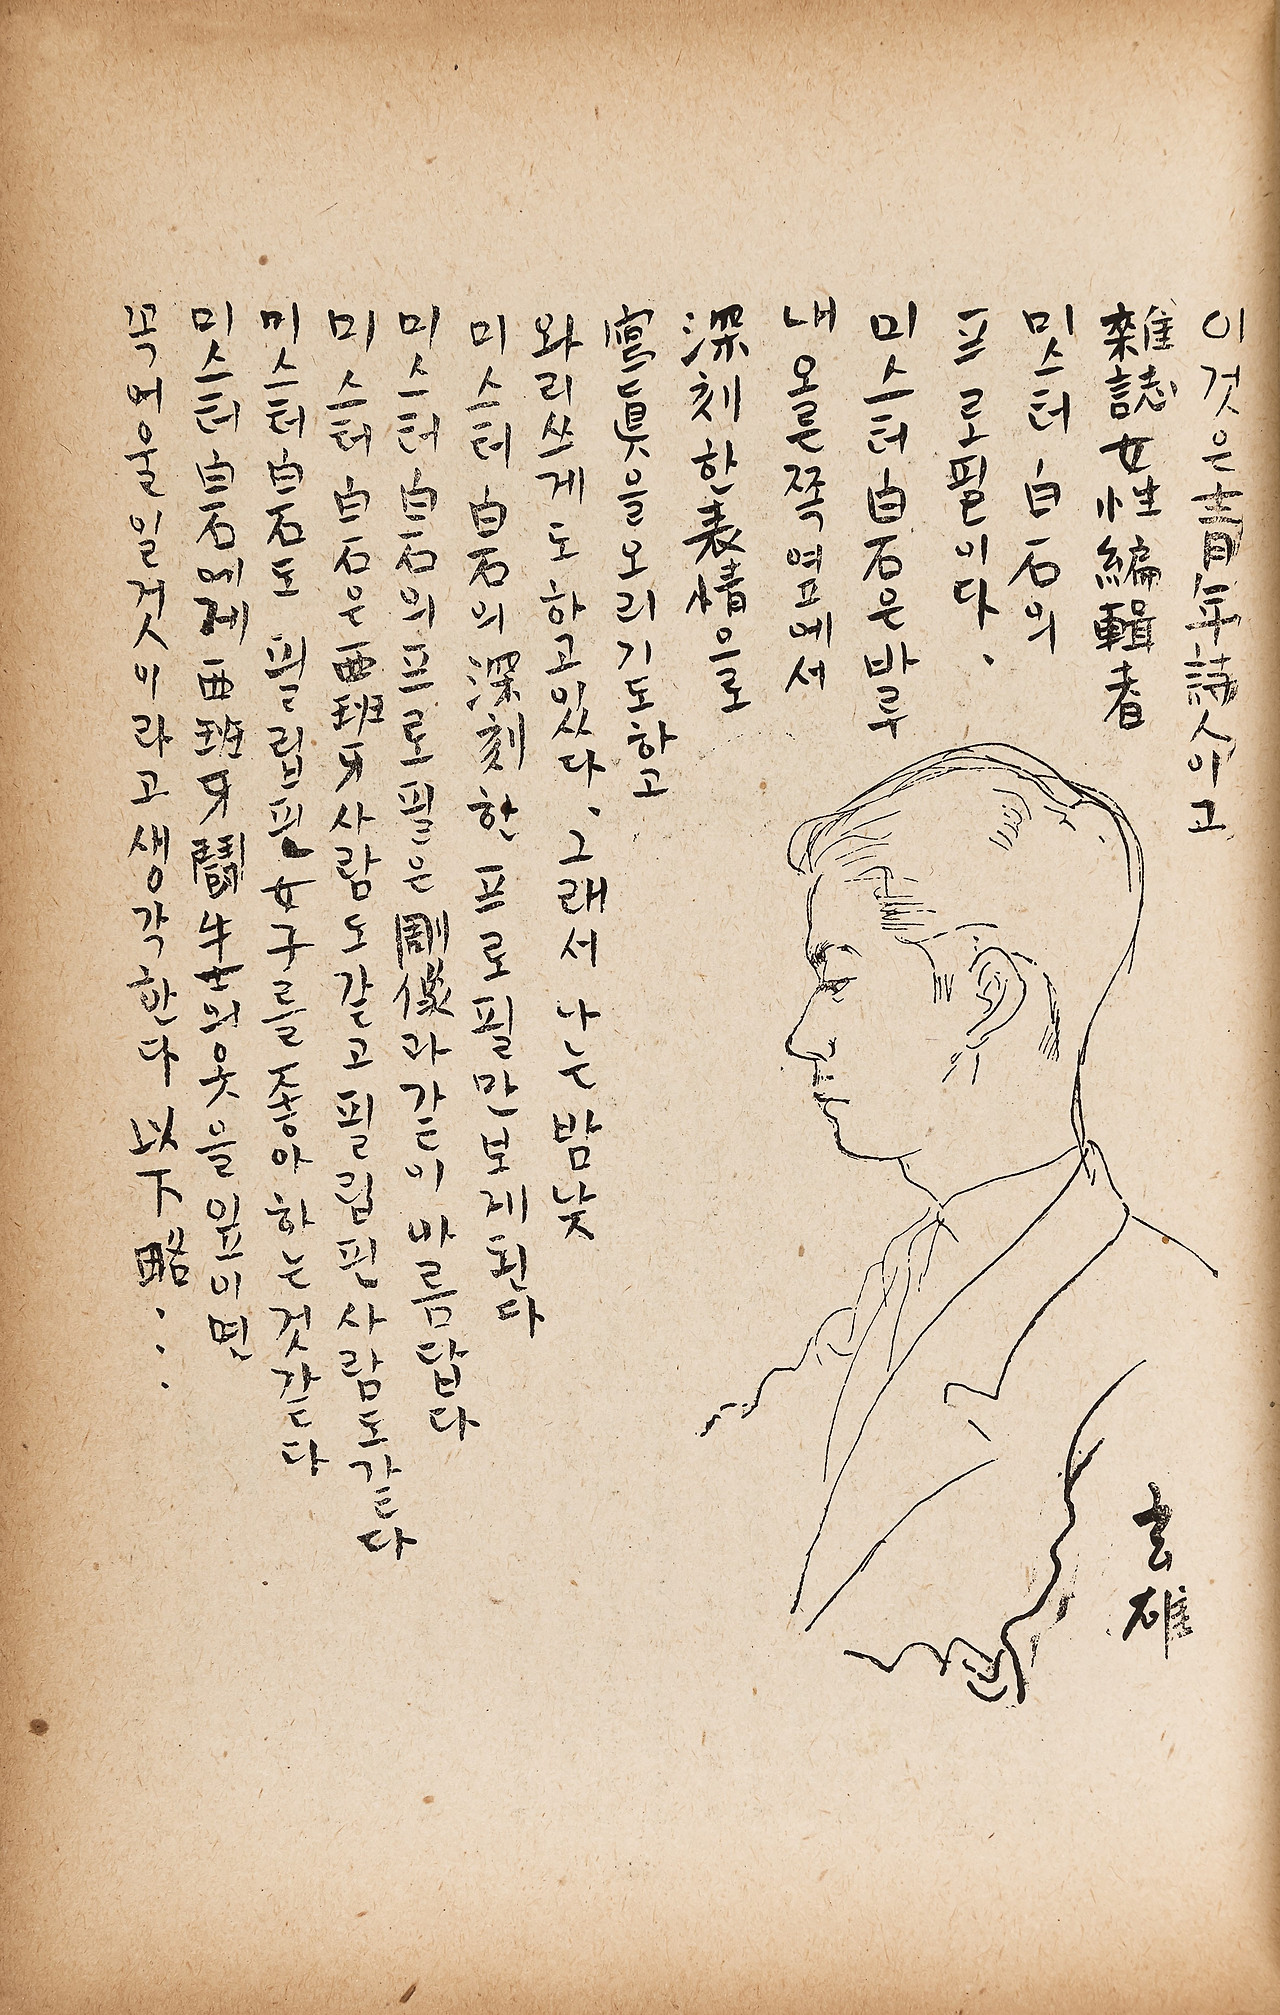 이것은靑年詩人이고
雜誌女性編輯者
미스터 白石의
프로필이다.
미스터 白石은바루
내오른쪽옆에서
深刻한表情으로
寫眞을오리기도하고
와리쓰게도하고있다. 그래서 나는 밤낮
미스터 白石의 深刻한 프로필만보게된다
미스터白石의프로필은彫像과같이 아름답다
미스터 白石은西班牙사람도같고필립핀사람도같다
미스터白石도 필립핀女子를좋아하는것같다
미스터白石에게西班牙鬪牛士의옷을입이면
꼭어울일것이라고생각한다 以下略...
玄雄